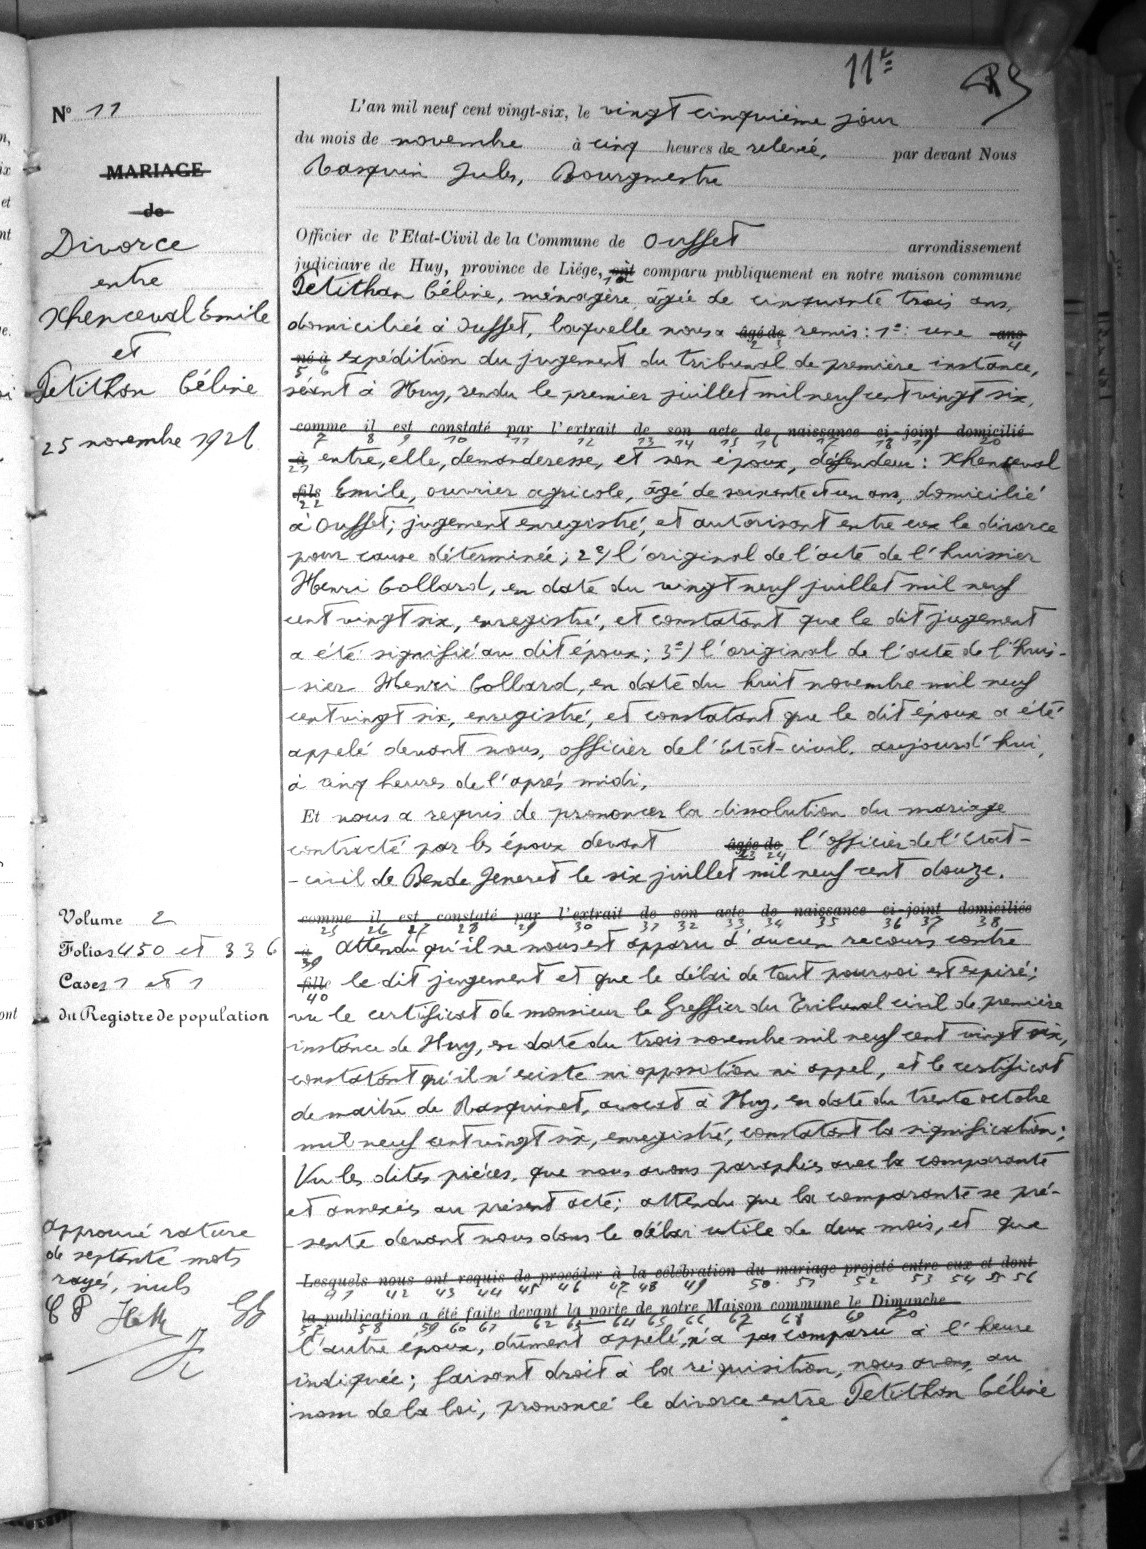 11e
N° 11
MARIAGE
de
Divorce
entre
Xhenceval Emile
et
Petithan Céline
25 novembre 1926
L'an mil neuf cent vingt-six, le vingt cinquième jour
du mois de novembre à cinq heures de relevée, par devant Nous
Rasquin Jules, Bourgmestre
Officier de l'Etat-Civil de la Commune de Ouffet arrondissement
judiciaire de Huy, province de Liége, ont a comparu publiquement en notre maison commune
Petithan Céline, ménagère âgée de cinquante trois ans,
domiciliée à Ouffet, laquelle nous a âgé de remis : 1°: une ans
né à expédition du jugement du tribunal de première instance,
séant à Huy, rendu le premier juillet mil neuf cent vingt six,
comme il est constaté par l'extrait de son acte de naissance ci-joint domicilié
à entre, elle, demanderesse, et son époux, défendeur : Xhenceval
fils Emile, ouvrier agricole, âgé de soixante et un ans, domicilié
à Ouffet; jugement enregistré, et autorisant entre eux le divorce
pour cause déterminée; 2°/ l'original de l'acte de l'huissier
Henri Collard, en date du vingt neuf juillet mil neuf
cent vingt six, enregistré, et constatant que le dit jugement
a été signifié au dit époux; 3°/ l'original de l'acte de l'huis-
-sier Henri Collard, en date du huit novembre mil neuf
cent vingt six, enregistré, et constatant que le dit époux a été
appelé devant nous, officier de l'Etat-civil. aujourd'hui,
à cinq heures de l'après midi,
Et nous a requis de prononcer la dissolution du mariage
contracté par les époux devant âgée de l'officier de l'état-
-civil de Bende Jeneret le six juillet mil neuf cent douze.
comme il est constaté par l'extrait de son acte de naissance ci-joint domiciliée
à Attendu qu'il ne nous est apparu d'aucun recours contre
fille le dit jugement et que le délai de tout pourvoi est expiré;
vu le certificat de monsieur le Greffier du Tribunal civil de première
instance de Huy, en date du trois novembre mil neuf cent vingt six,
constatant qu'il n'existe ni opposition ni appel, et le certificat
de maître de Rasquinet, avocat à Huy, en date du trente octobre
mil neuf cent vingt six, enregistré, constatant la signification;
Vu les dites pièces, que nous avons paraphées avec la comparante
et annexées au présent acte; attendu que la comparante se pré-
-sente devant nous dans le délai utile de deux mois, et que
Lesquels nous ont requis de procéder à la célébration du mariage projeté entre eux et dont
la publication a été faite devant la porte de notre Maison commune le Dimanche
l'autre époux, dûment appelé, n'a pas comparu à l'heure
indiquée; faisant droit à la réquisition, nous avons, au
nom de la loi, prononcé le divorce entre Petithan Céline
Volume 2
Folios 450 et 336
Cases 1 et 1
du Registre de population
approuvé rature
de septante mots
rayés, nuls
C P